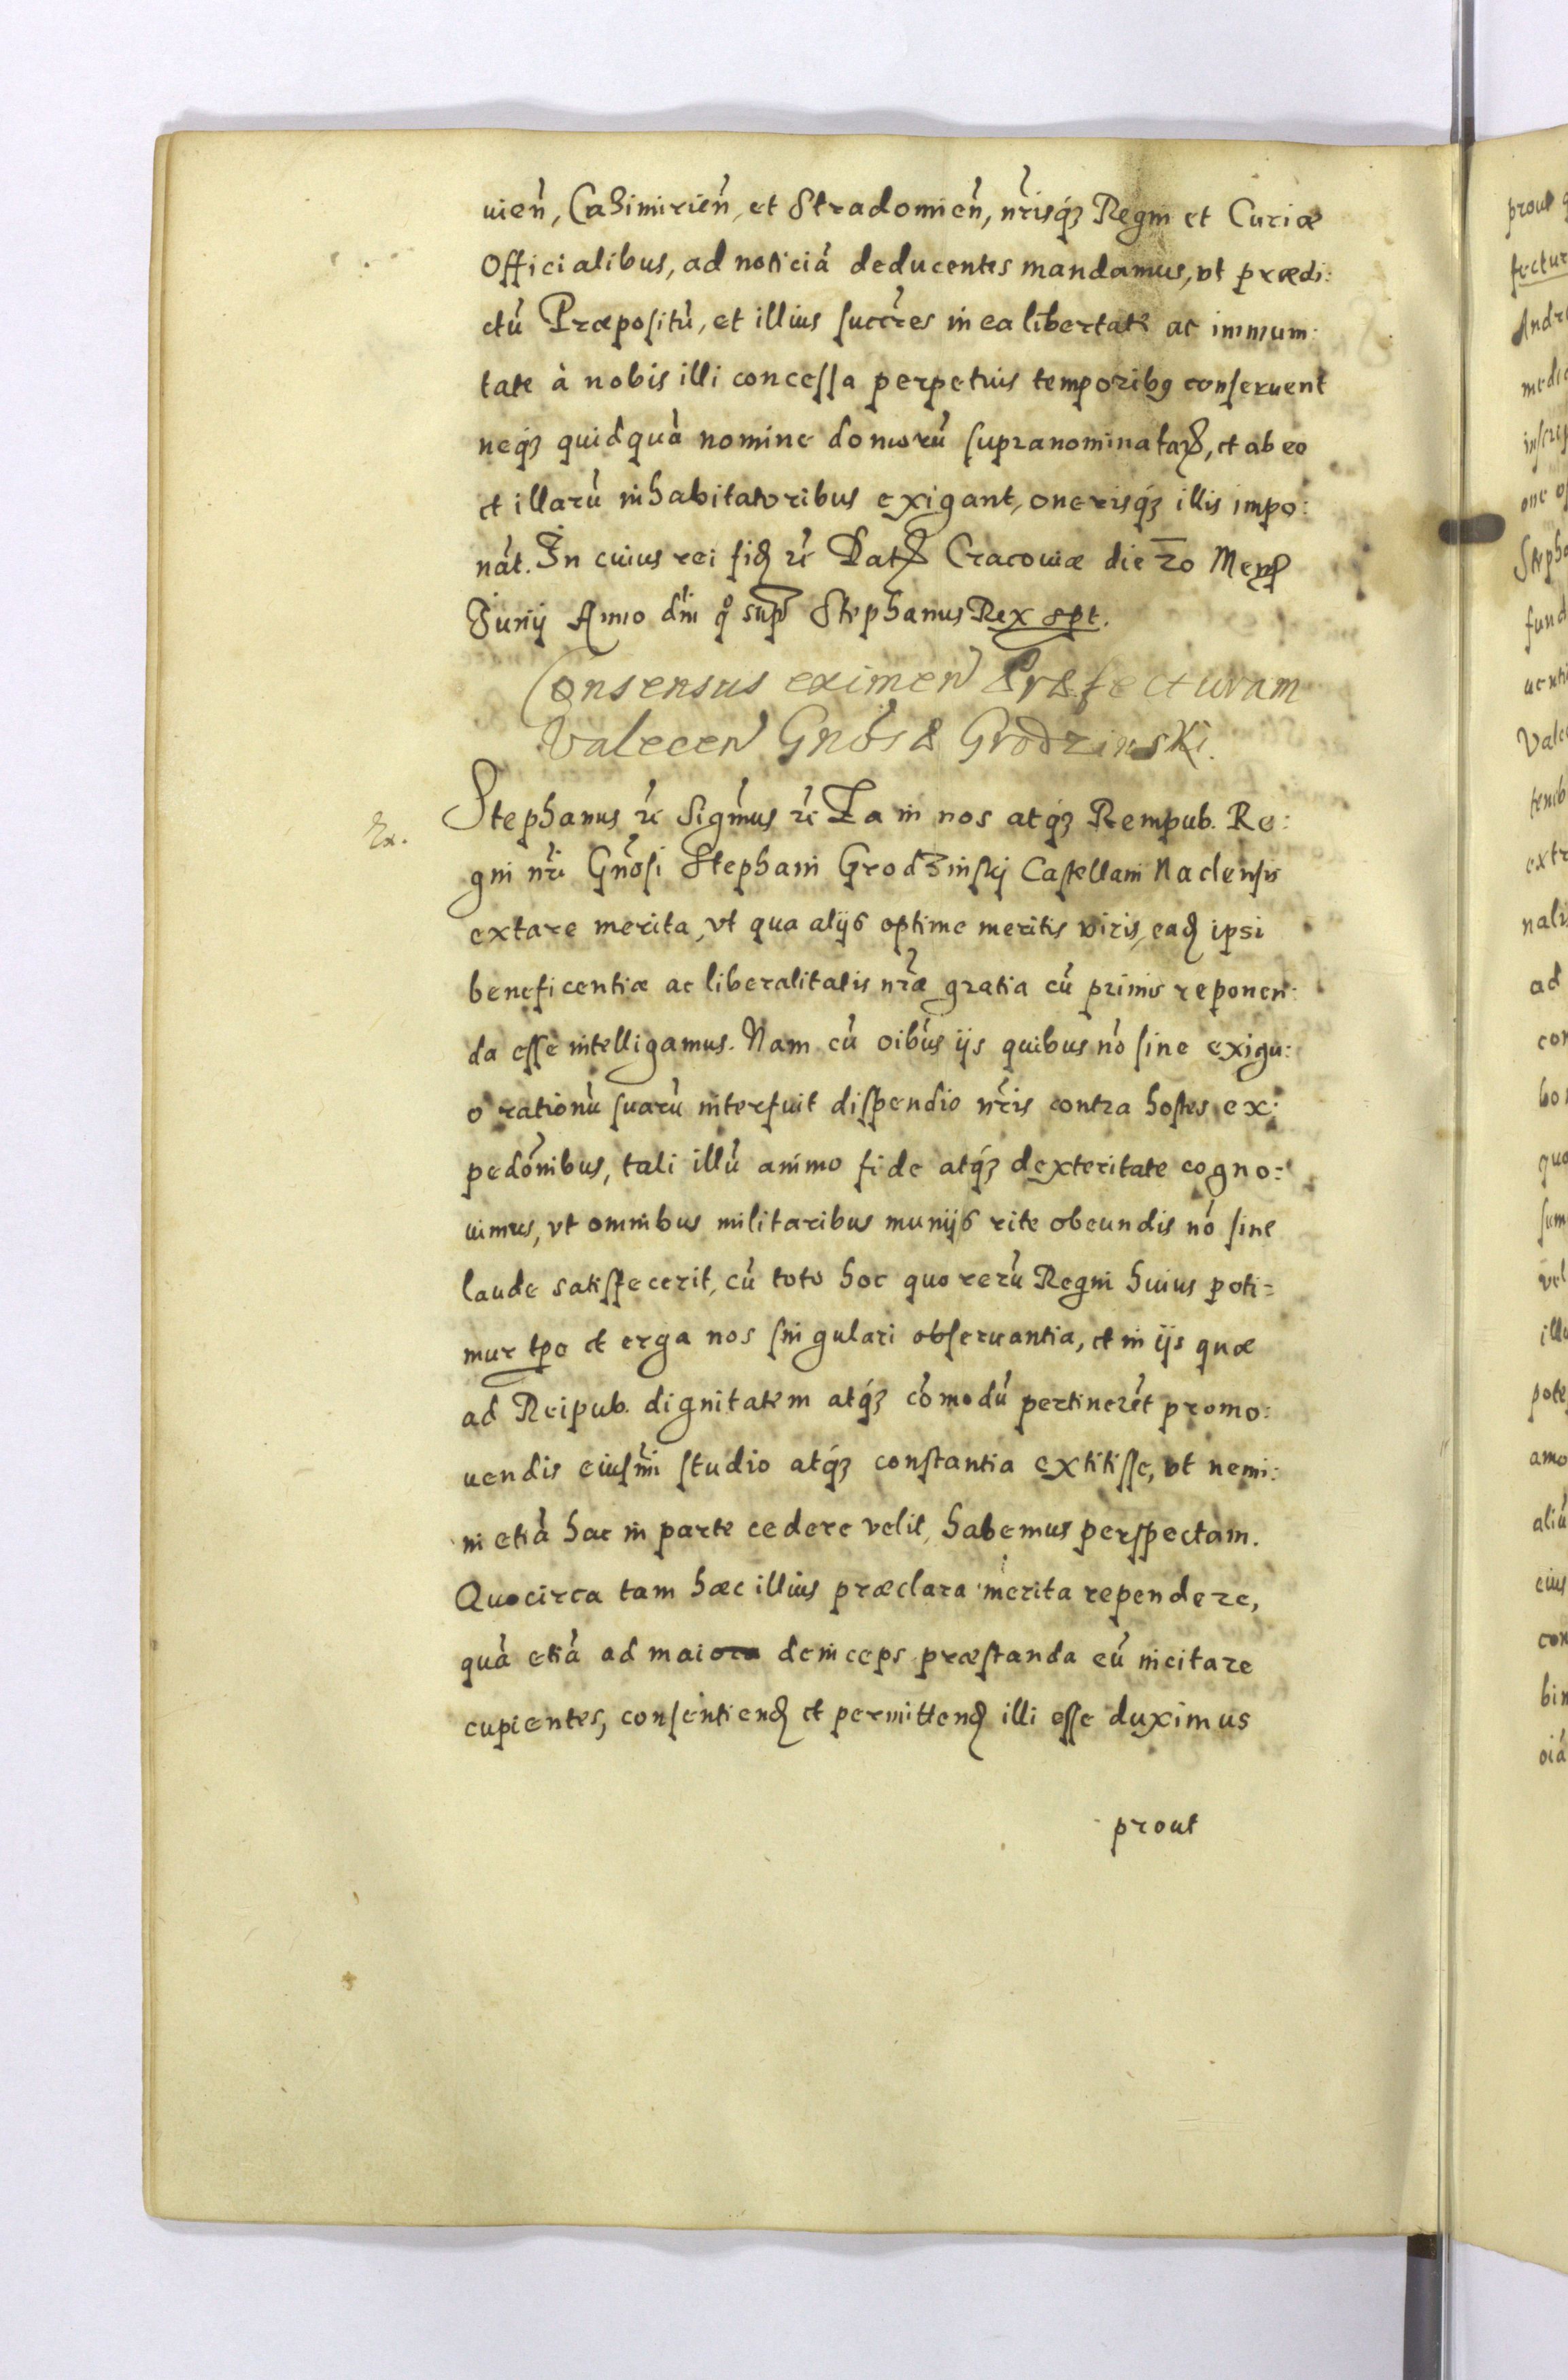 uień, Cazimirień, et Stradomień, nr̃isq́ꝫ Regni et Curiæ
Officialibus, ad noticiã deducentes mandamus, vt prædi:
ctũ Præpositũ, et illius succr̃es in ea libertate ac immuni:
tate à nobis illi concessa perpetuis temporibꝯ conseruent
neq́ꝫ quidquã nomine domorũ supranominataꝝ, et ab eo
et illarũ inhabitatoribus exigant, onerisq́ꝫ illis impo:
nãt. In cuius rei fid̨ rc̃ Datꝭ Cracouiæ die 20 Mensꝭ
Junij Anno dñi q̊ supr̃ Stephanus Rex sp̱t.
Consensus eximeń Præfecturam
Valeceń Gnõs& Grodzinski.
Ex.
Stephanus rc̃ Sigm̃us rc̃ Ea in nos atq́ꝫ Rempub. Re:
gni nr̃i Gnõsi Stephani Grodzinskj Castellani Naclensis
extare merita, vt qua alijs optime meritis viris, ead̨ ipsi
beneficentiæ ac liberalitatis nr̃æ gratia cũ primis reponen:
da esse intelligamus. Nam cũ oĩbus ijs quibus nõ sine exigu:
o rationũ suarũ interfuit dispendio nr̃is contra hostes ex:
pedõnibus, tali illũ animo fide atq́ꝫ dexteritate cogno:
uimus, vt omnibus militaribus munijs rite obeundis nõ sine
laude satisfecerit, cũ toto hoc quo rerũ Regni huius poti=
mur tp̱e et erga nos singulari obseruantia, et in ijs quæ
ad Reipub. dignitatem atq́ꝫ cõmodũ pertinerẽt promo:
uendis eiusm̃i studio atq́ꝫ constantia extitisse, vt nemi:
ni etiã hac in parte cedere velit, habemus perspectam.
Quocirca tam hæc illius præclara merita rependere,
quã etiã ad maiora deinceps præstanda eũ incitare
cupientes, consentiend̨ et permittend̨ illi esse duximus
prout